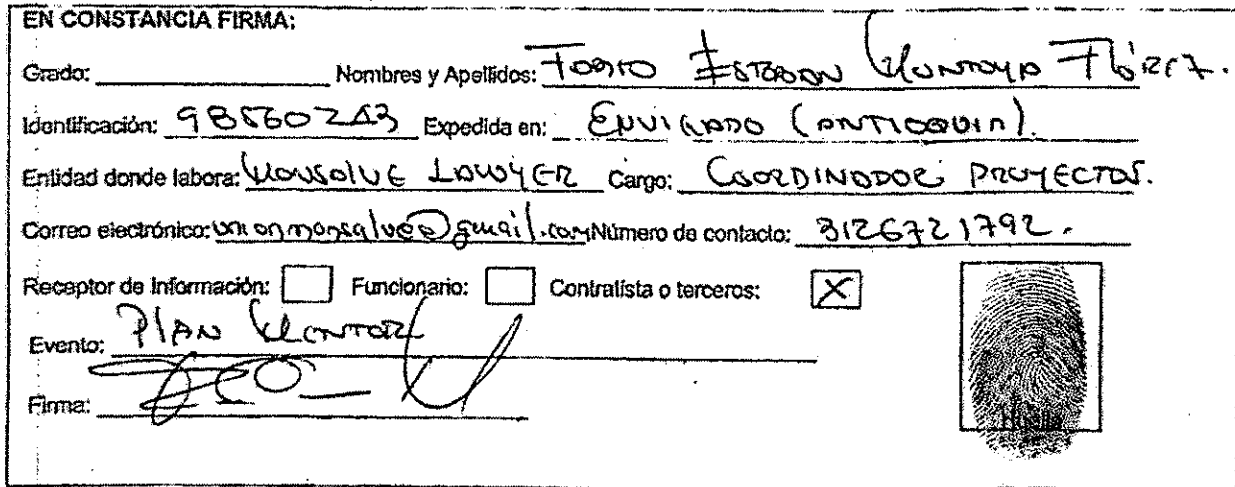 EN CONSTANCIA FIRMA:
Grado: Nombres y Apellidos: Esteban Montoya Flórez.
Identificación: Expedida en: ENVIGADO (ANTIOQUIA).
Entidad donde labora: MONSALVE LAWYER Cargo: COORDINADOR PROYECTOS.
Correo electrónico: Número de contacto: 3126721792.
Receptor de Información: Funcionario: Contratista o terceros: X
Evento: PLAN MENTOR
Firma:
Huella